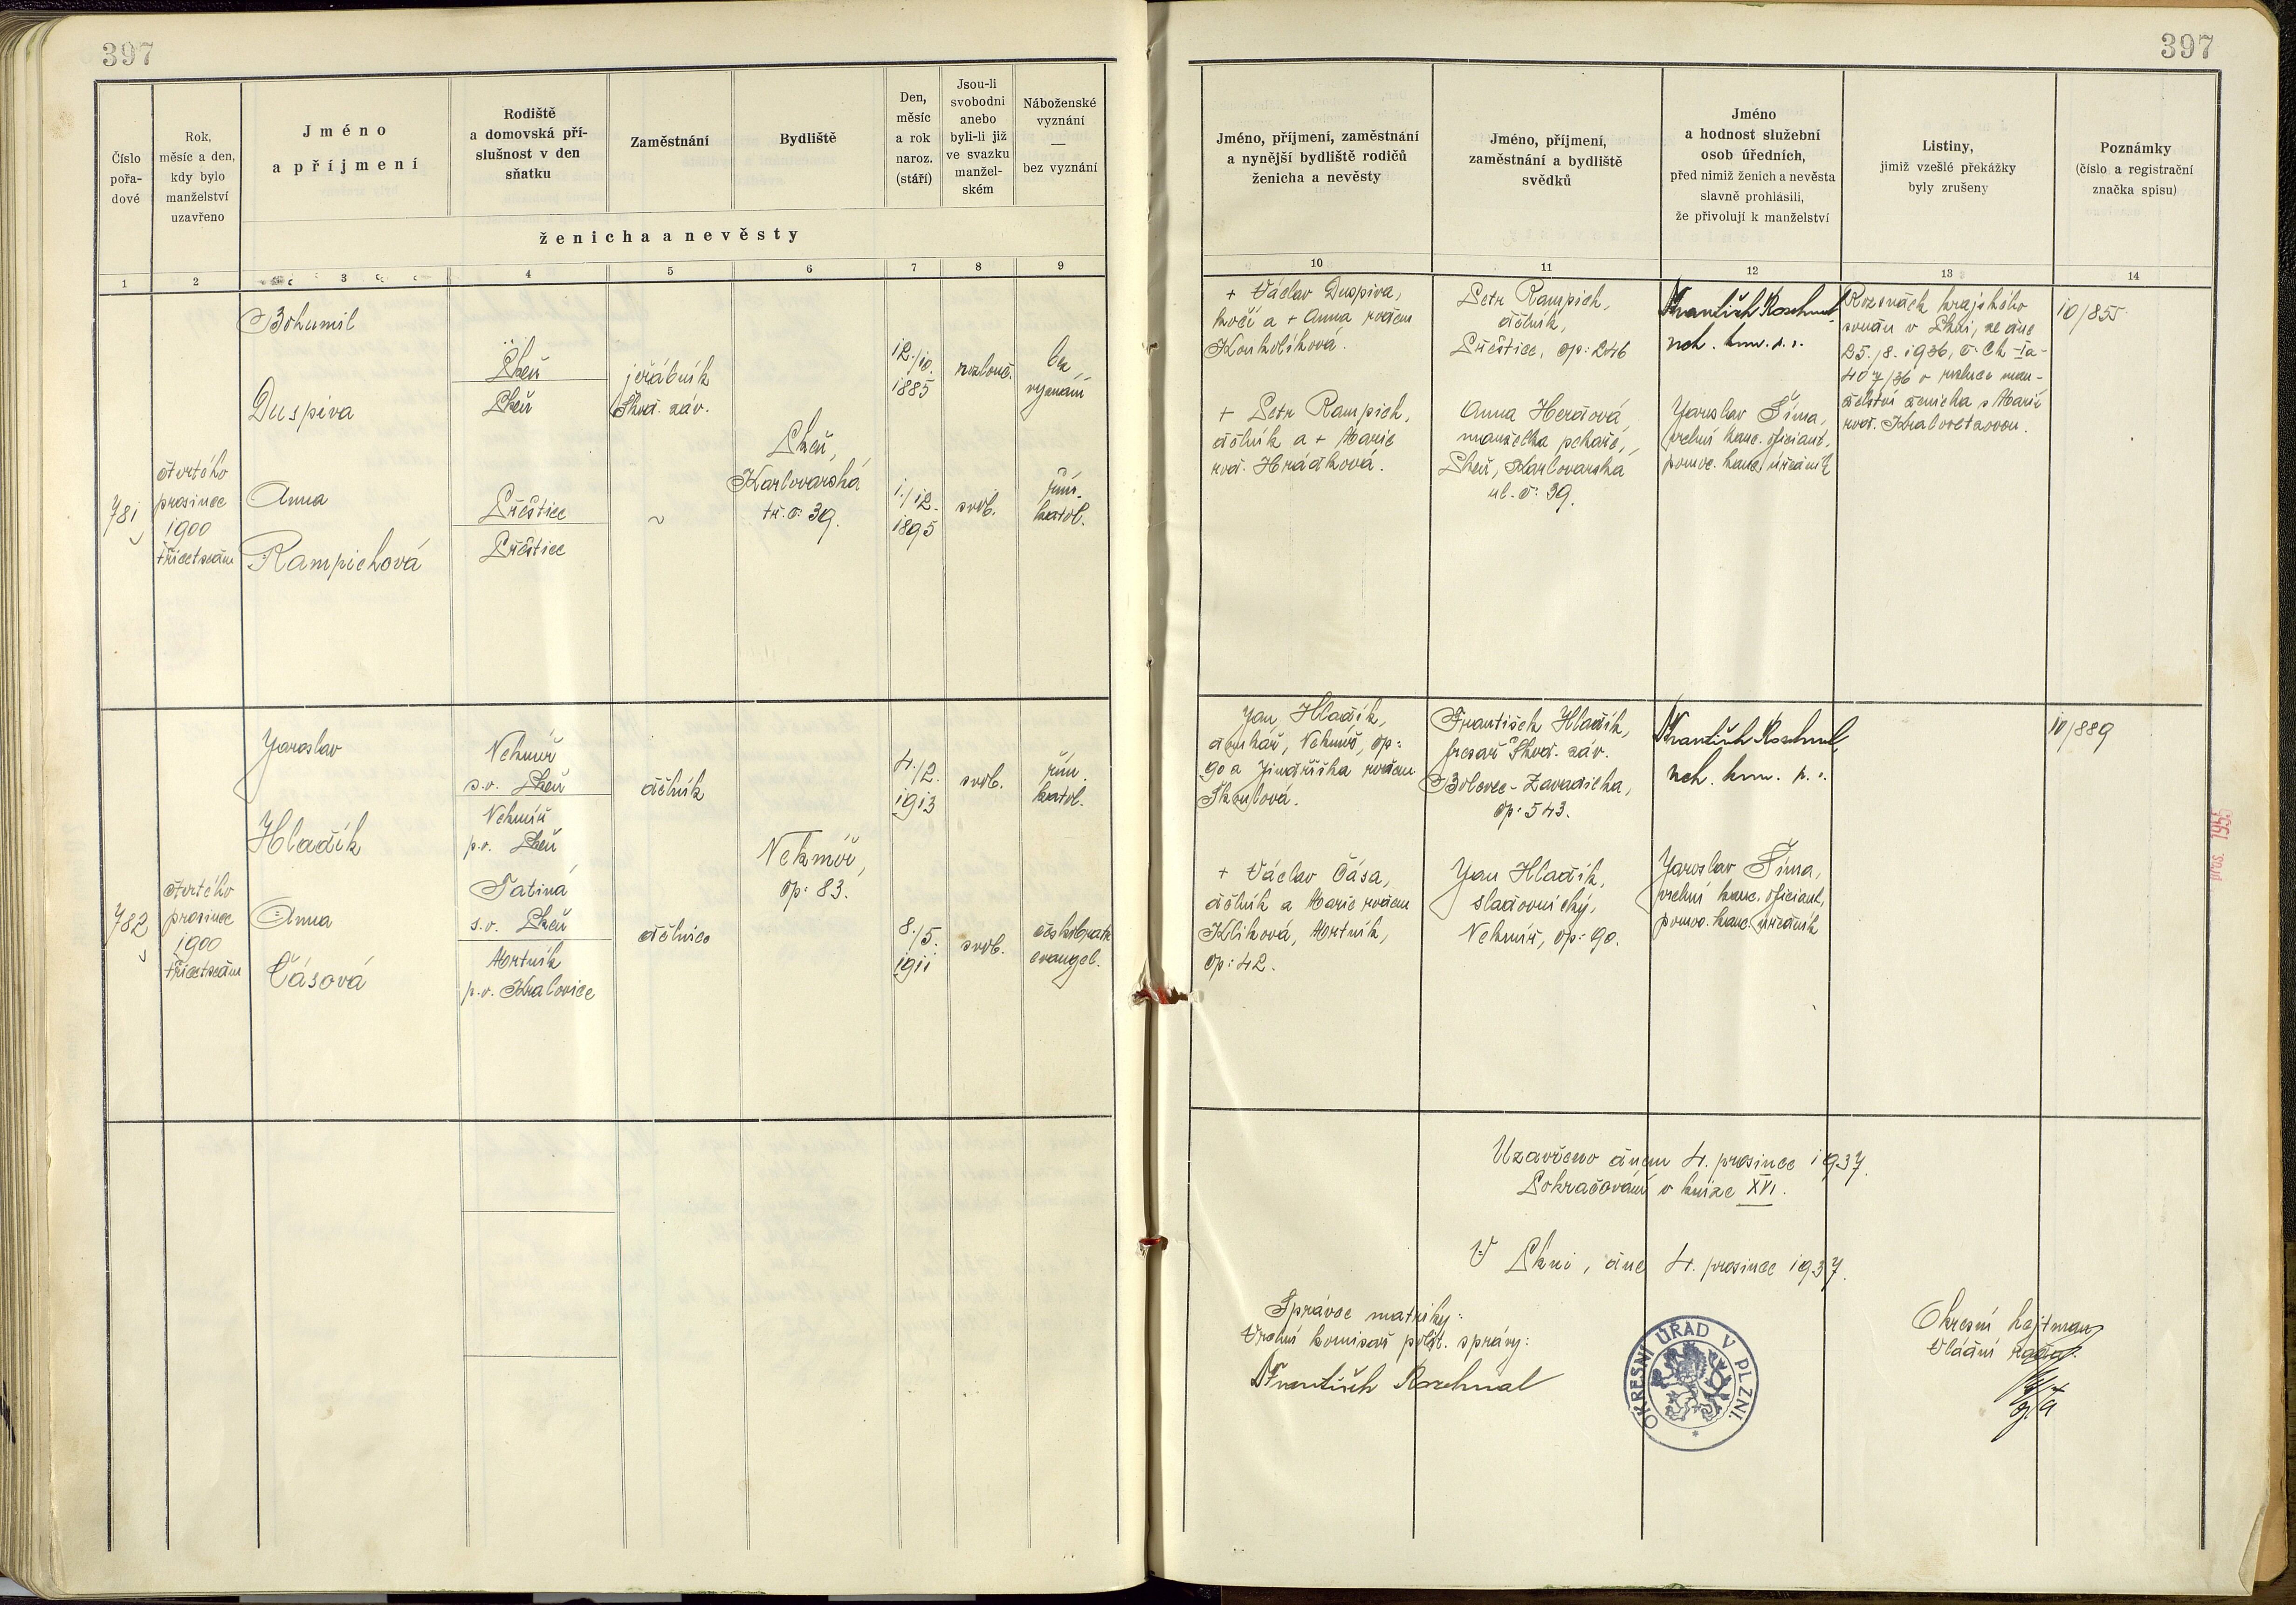 397
397
Číslo
pořa-
dové
Rok,
měsíc a den,
kdy bylo
manželství
uzavřeno
Jméno
a příjmení
Rodiště
a domovská pří-
slušnost v den
sňatku
Zaměstnání
Bydliště
Den,
měsíc
a rok
naroz.
(stáří)
Jsou-li
svobodni
anebo
byli-li již
ve svazku
manžel-
ském
Náboženské
vyznání
—
bez vyznání
ženicha a nevěsty
1 2 3 4 5 6 7 8 9
Jméno, příjmení, zaměstnání
a nynější bydliště rodičů
ženicha a nevěsty
Jméno, příjmení,
zaměstnání a bydliště
svědků
Jméno
a hodnost služební
osob úředních,
před nimiž ženich a nevěsta
slavně prohlásili,
že přivolují k manželství
Listiny,
jimiž vzešlé překážky
byly zrušeny
Poznámky
(číslo a registrační
značka spisu)
10 11 12 13 14
781
čtvrtého
prosince
1900
třicetsedm
Bohumil
Duspiva
Plzeň
Plzeň
jeřábník
Škod. záv.
12./10.
1885
rozlouč.
bez
vyznání
Plzeň,
Karlovarská
tř. č. 39.
Anna
Rampichová
Přeštice
Přeštice
~
1./12.
1895
svob.
řím.
katol.
+ Václav Duspiva,
kočí a + Anna rozem
Kouholíková.
+ Petr Rampich,
dělník a + Marie
roz. Hrádková.
Petr Rampich,
dělník,
Přeštice, čp: 246
Anna Herdová,
manželka pekaře,
Plzeň, Karlovarská
ul. č: 39.
František Roschnal
vrch. kom. p. s.
Jaroslav Šíma,
vrchní kanc. oficiant,
pomoc. kanc. úředník
Rozsudek krajského
soudu v Plzni, ze dne
25./8. 1936, č. Ck Ia-
407/36 o rozluce man-
želství ženicha s Marií
roz. Kralovetzovou.
10/855
782
čtvrtého
prosince
1900
třicetsedm
Jaroslav
Hladík
Nekmíř
s.o. Plzeň
Nekmíř
p.o. Plzeň
dělník
4./2.
1913
svob.
řím.
katol.
Nekmíř,
čp: 83.
Anna
Čásová
Tatiná
s.o. Plzeň
Mrtník
p.o. Kralovice
dělnice
8./5.
1911
svob.
českobratr.
evangel.
Jan Hladík,
Nekmíř, čp:
90 a Jindřiška rozem
Škoulová.
+ Václav Čása,
dělník a Marie rozem
Klíková, Mrtník,
čp: 42.
František Hladík,
fresař Škod. záv.
Bolevec - Zavadilka,
čp: 543.
Jan Hladík,
sladovnický,
Nekmíř, čp: 90.
František Roschnal
vrch. kom. p. s.
Jaroslav Šíma,
vrchní kanc. oficiant,
pomoc. kanc. úředník
10/889
Uzavřeno dnem 4. prosince 1937.
Pokračování v knize XVI.
V Plzni, dne 4. prosince 1937.
Správce matriky:
Vrchní komisař polit. správy:
František Roschnal
OKRESNÍ ÚŘAD V PLZNI.
Okresní hejtman
Vládní rada: